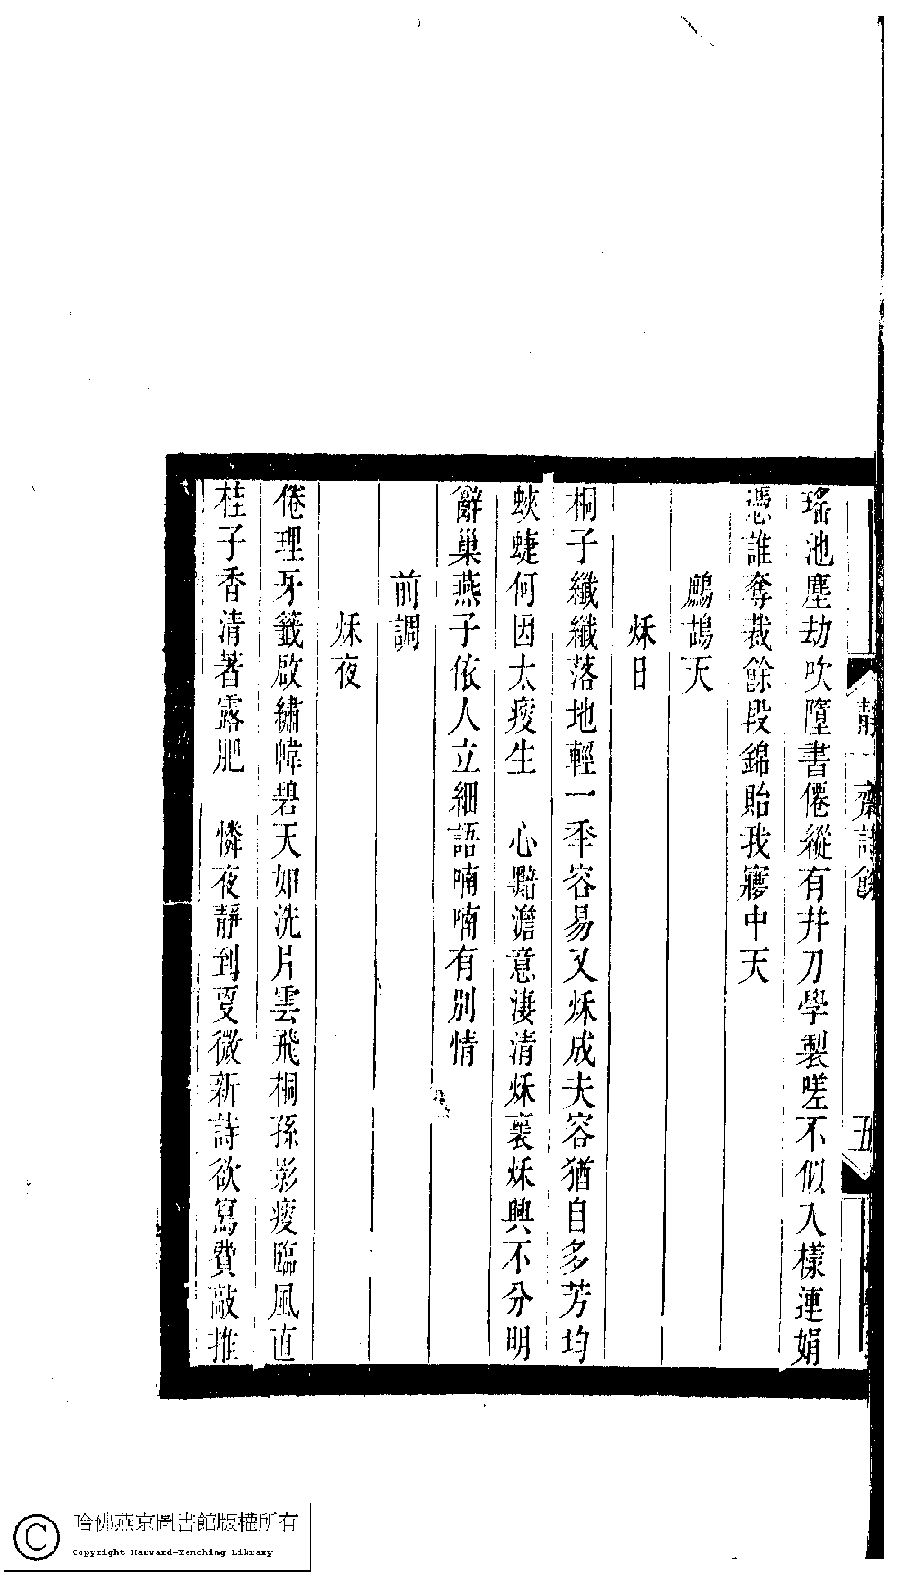 靜一齋詩餘
五
瑤池塵劫吹墮書僊縱有幷刀學製嗟不似入樣連娟
憑誰奪裁餘段錦貽我寱中天
鷓鴣天
秌日
桐子纖纖落地輕一秊容易又秌成夫容猶自多芳均
蛺蜨何因太瘦生　心黯澹意淒清秌褱秌興不分明
辭巢燕子依人立細語喃喃有別情
前調
秌夜
倦理牙籤啟繡幃碧天如洗片雲飛桐孫影瘦臨風直
桂子香清著露肥　憐夜靜到叓微新詩欲寫費敲推
哈佛燕京圖書館版權所有
Copyright Harvard-Yenching Library